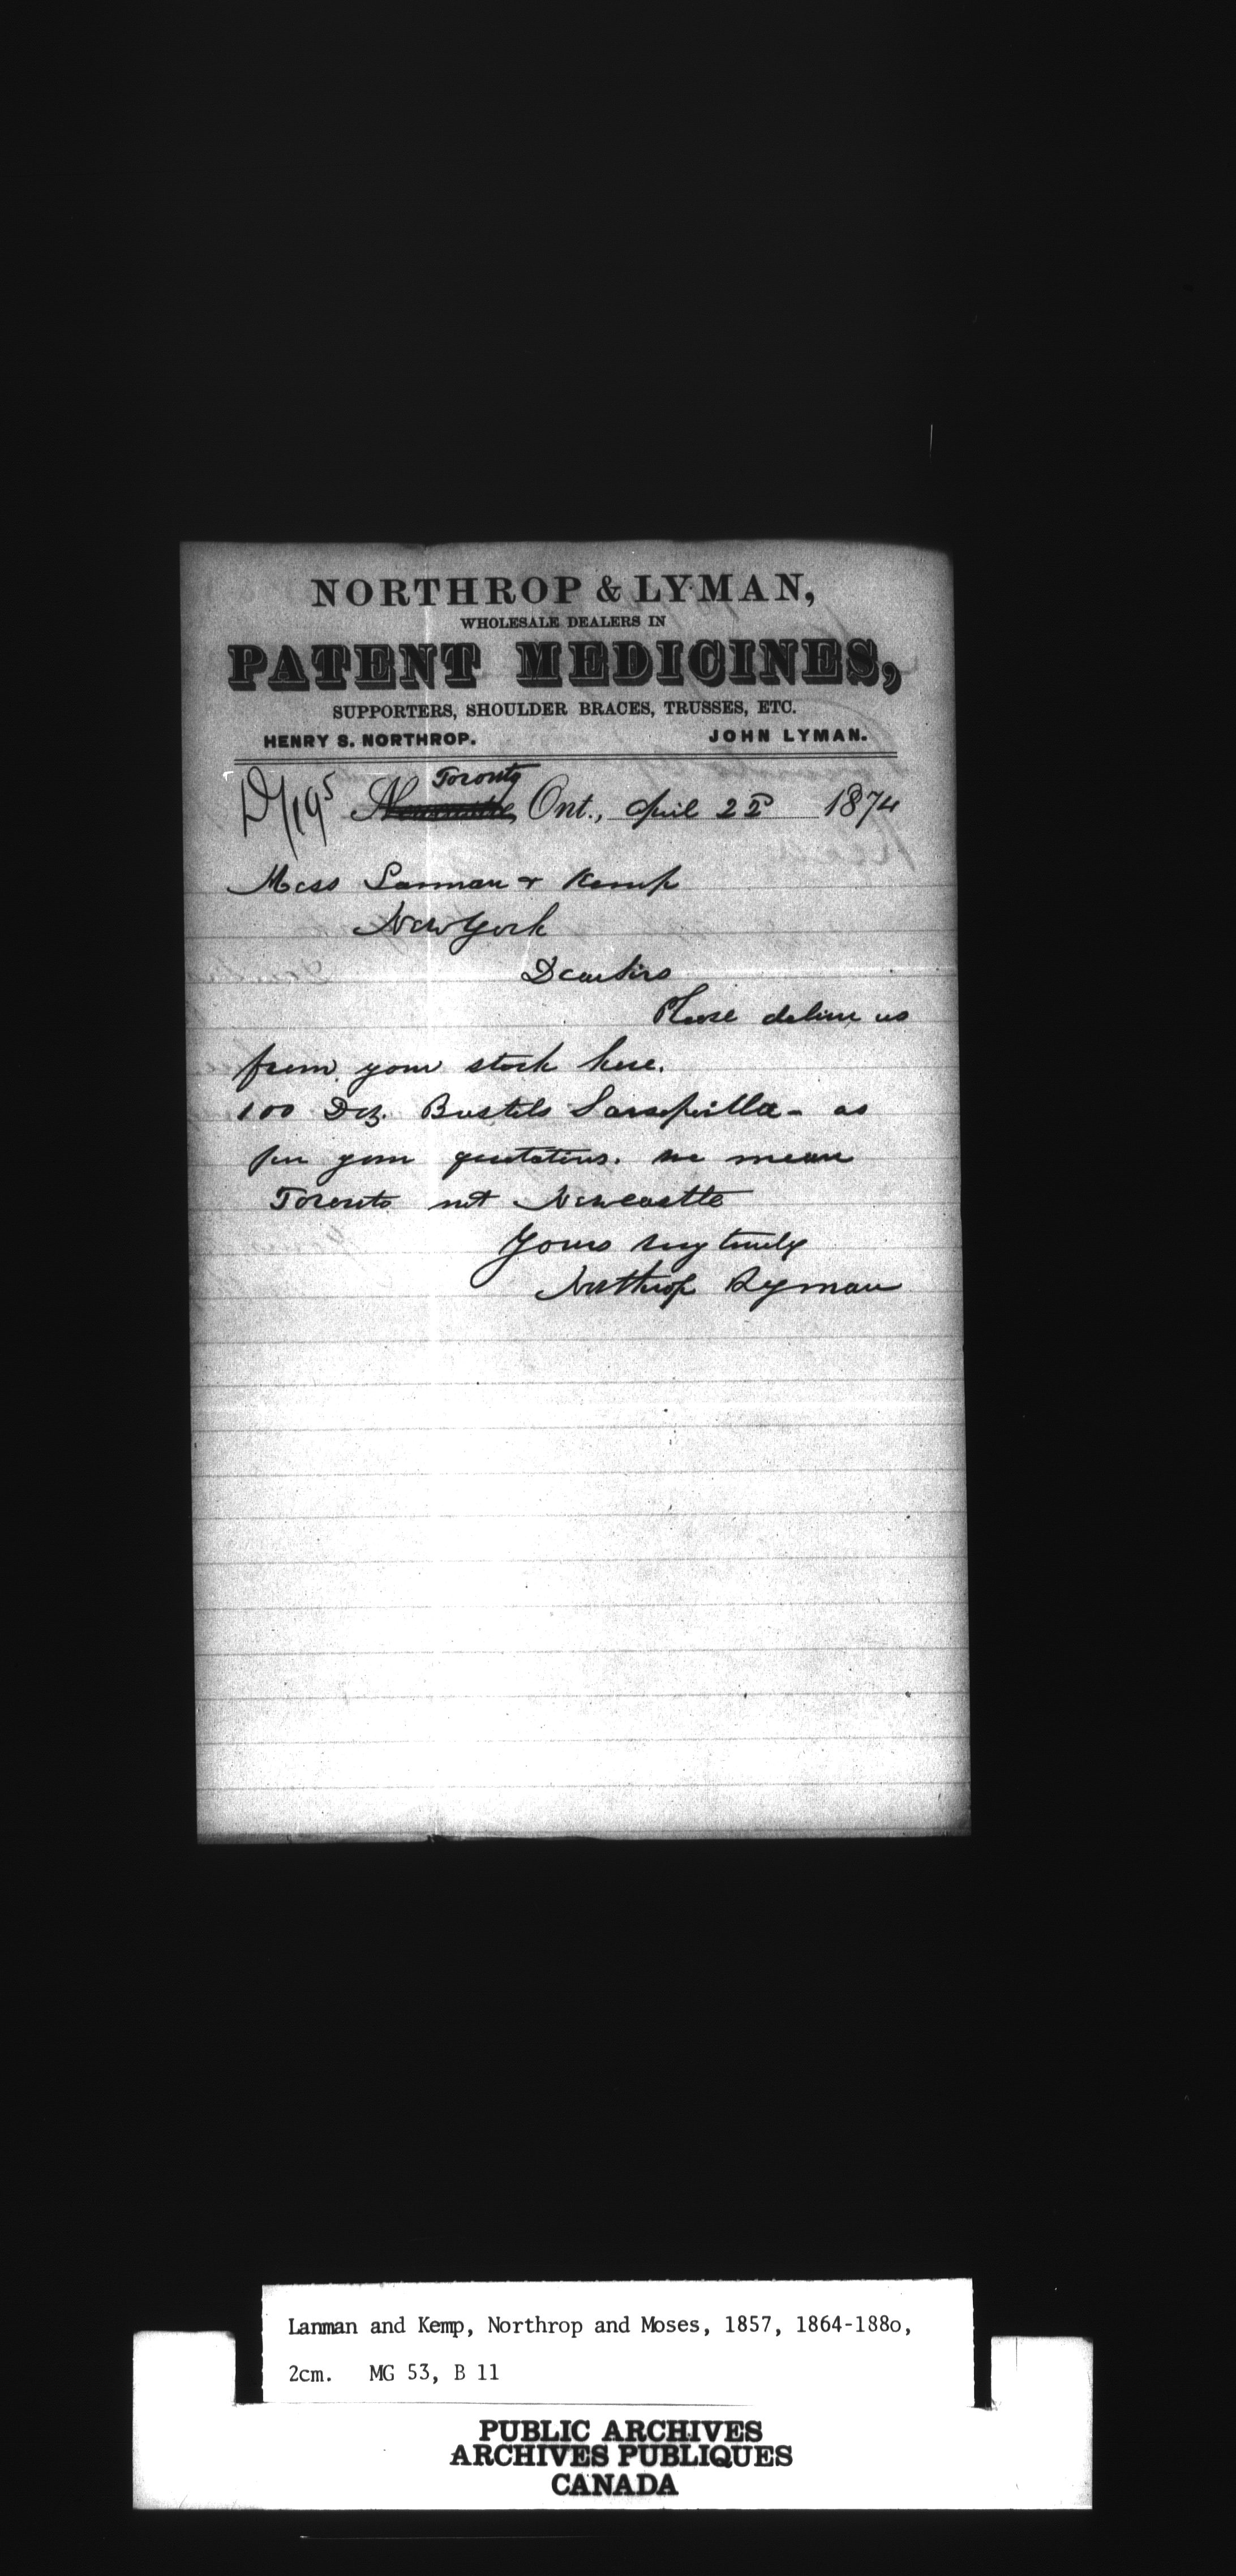 NORTHROP & LYMAN,
WHOLESALE DEALERS IN
PATENT MEDICINES,
SUPPORTERS, SHOULDER BRACES, TRUSSES, ETC.
HENRY S. NORTHROP. JOHN LYMAN.
Toronto
Newcastle, Ont., April 22 1874
Mess Lanman & Kemp
New York
Dear Sirs
Please deliver us
from your stock here.
100 Doz. Bristols Sarsaparilla - as
per your quotations. we mean
Toronto not Newcastle
Yours very truly
Northrop Lyman
Lanman and Kemp, Northrop and Moses, 1857, 1864-188o,
2cm. MG 53, B 11
PUBLIC ARCHIVES
ARCHIVES PUBLIQUES
CANADA